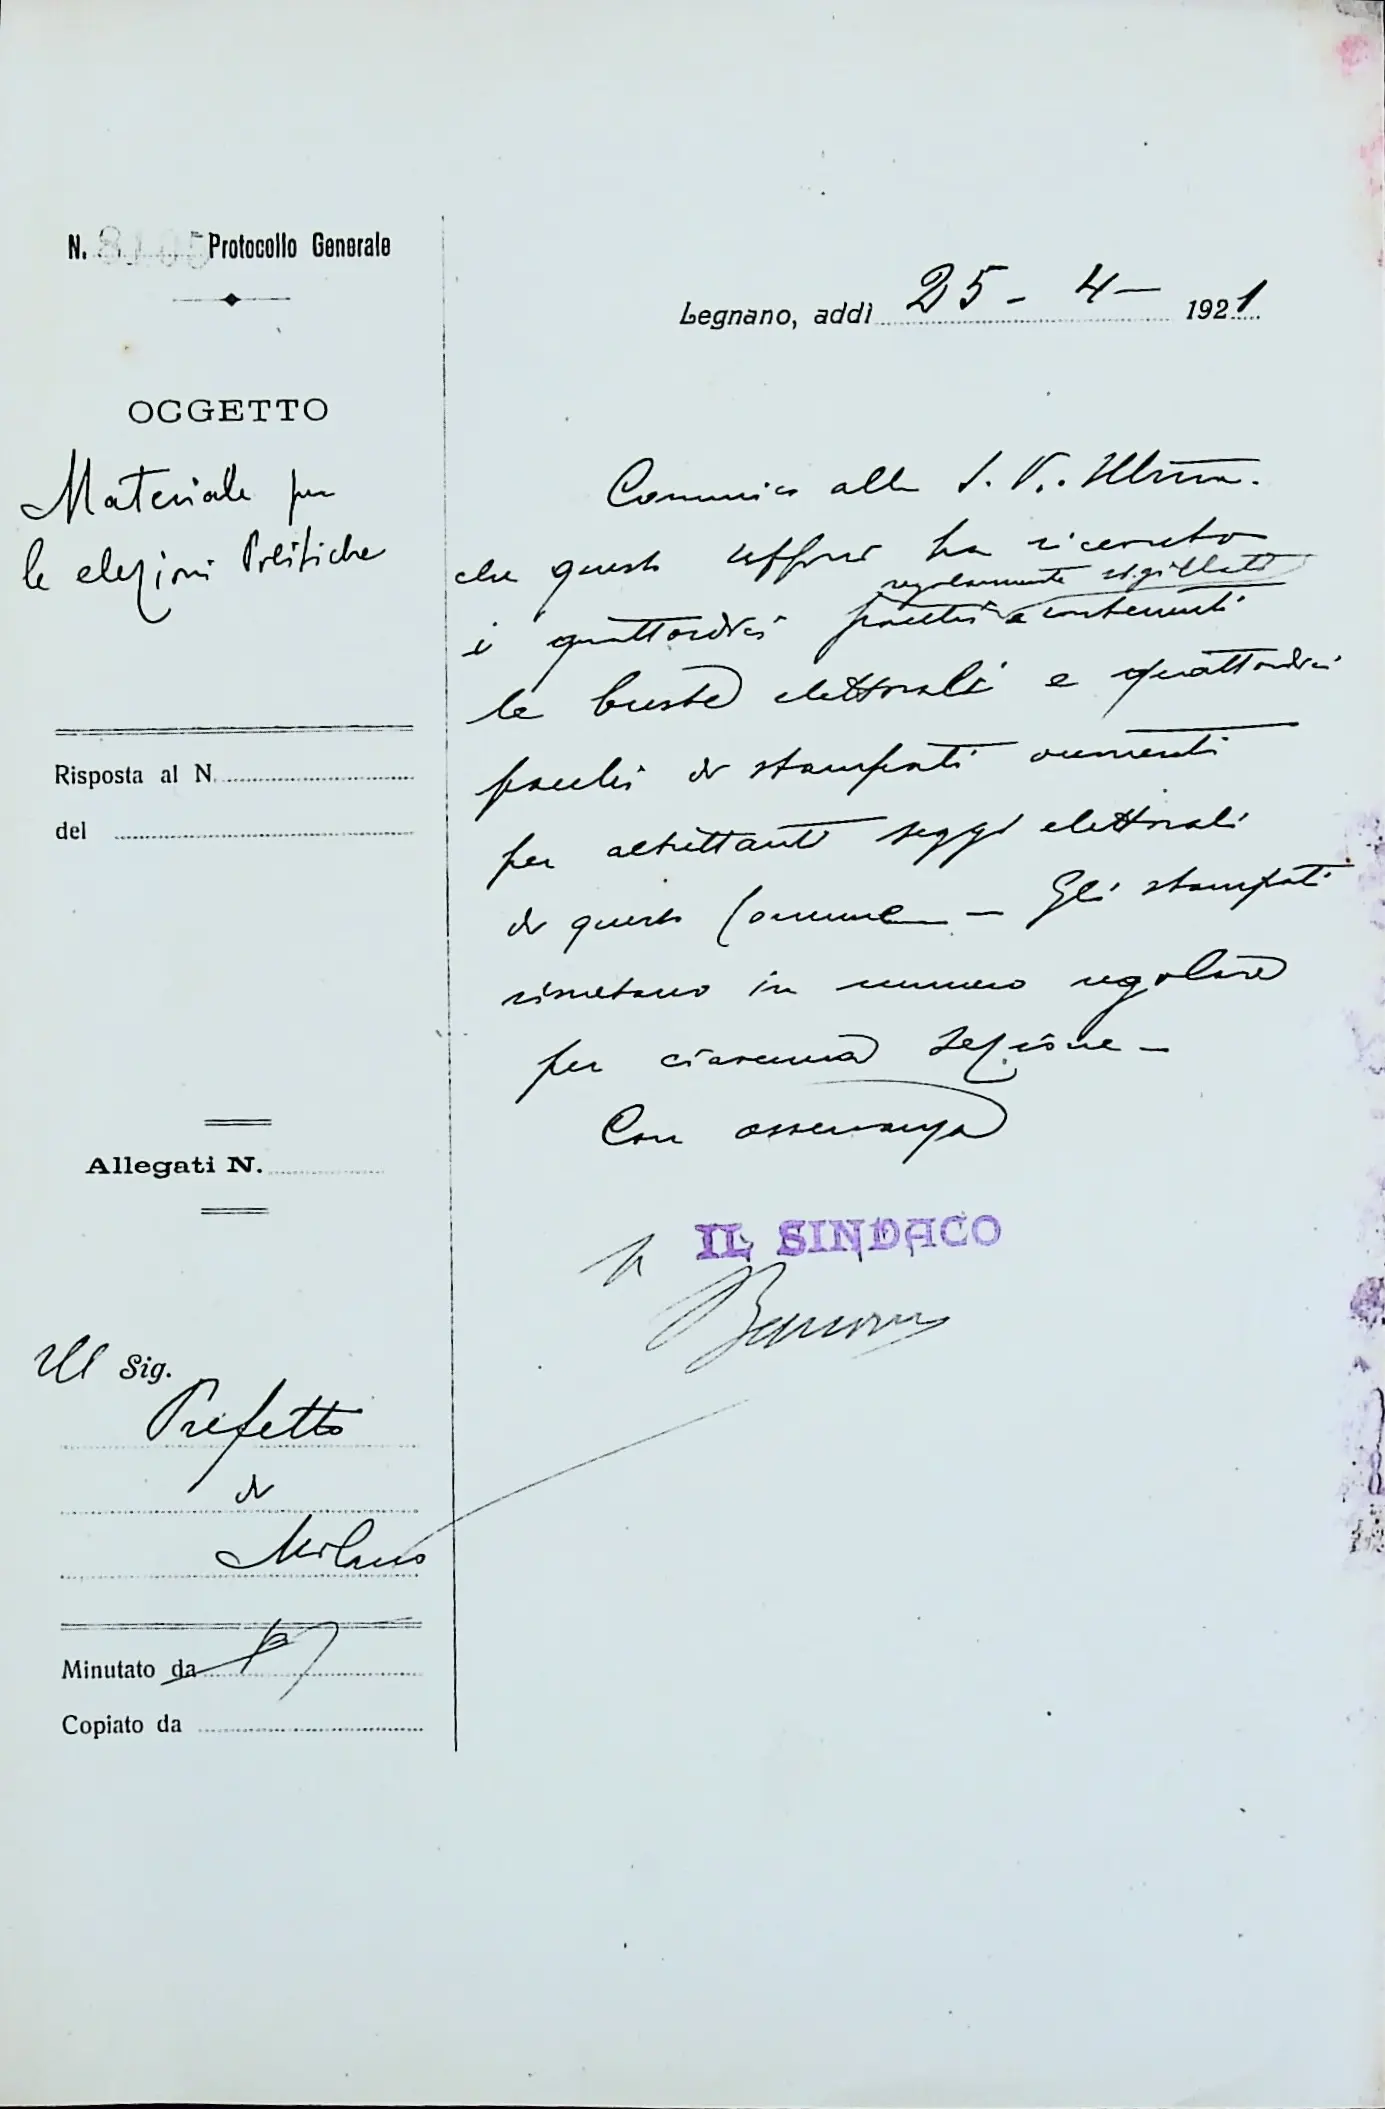 N. 8105 Protocollo Generale
Legnano, addì 25 - 4 - 1921
OGGETTO
Materiale per
le elezioni Politiche
Risposta al N.
del
Allegati N.
Ill Sig.
Prefetto
di
Milano
Minutato da
Copiato da
Comunico alla S. V. Ill.ma
che questo ufficio ha ricevuto
regolarmente sigillati
i quattordici pacchi contenenti
le buste elettorali e quattordici
pacchi di stampati occorrenti
per altrettanti seggi elettorali
di questo Comune - Gli stampati
risultano in numero regolare
per ciascuna sezione -
Con osservanza
IL SINDACO